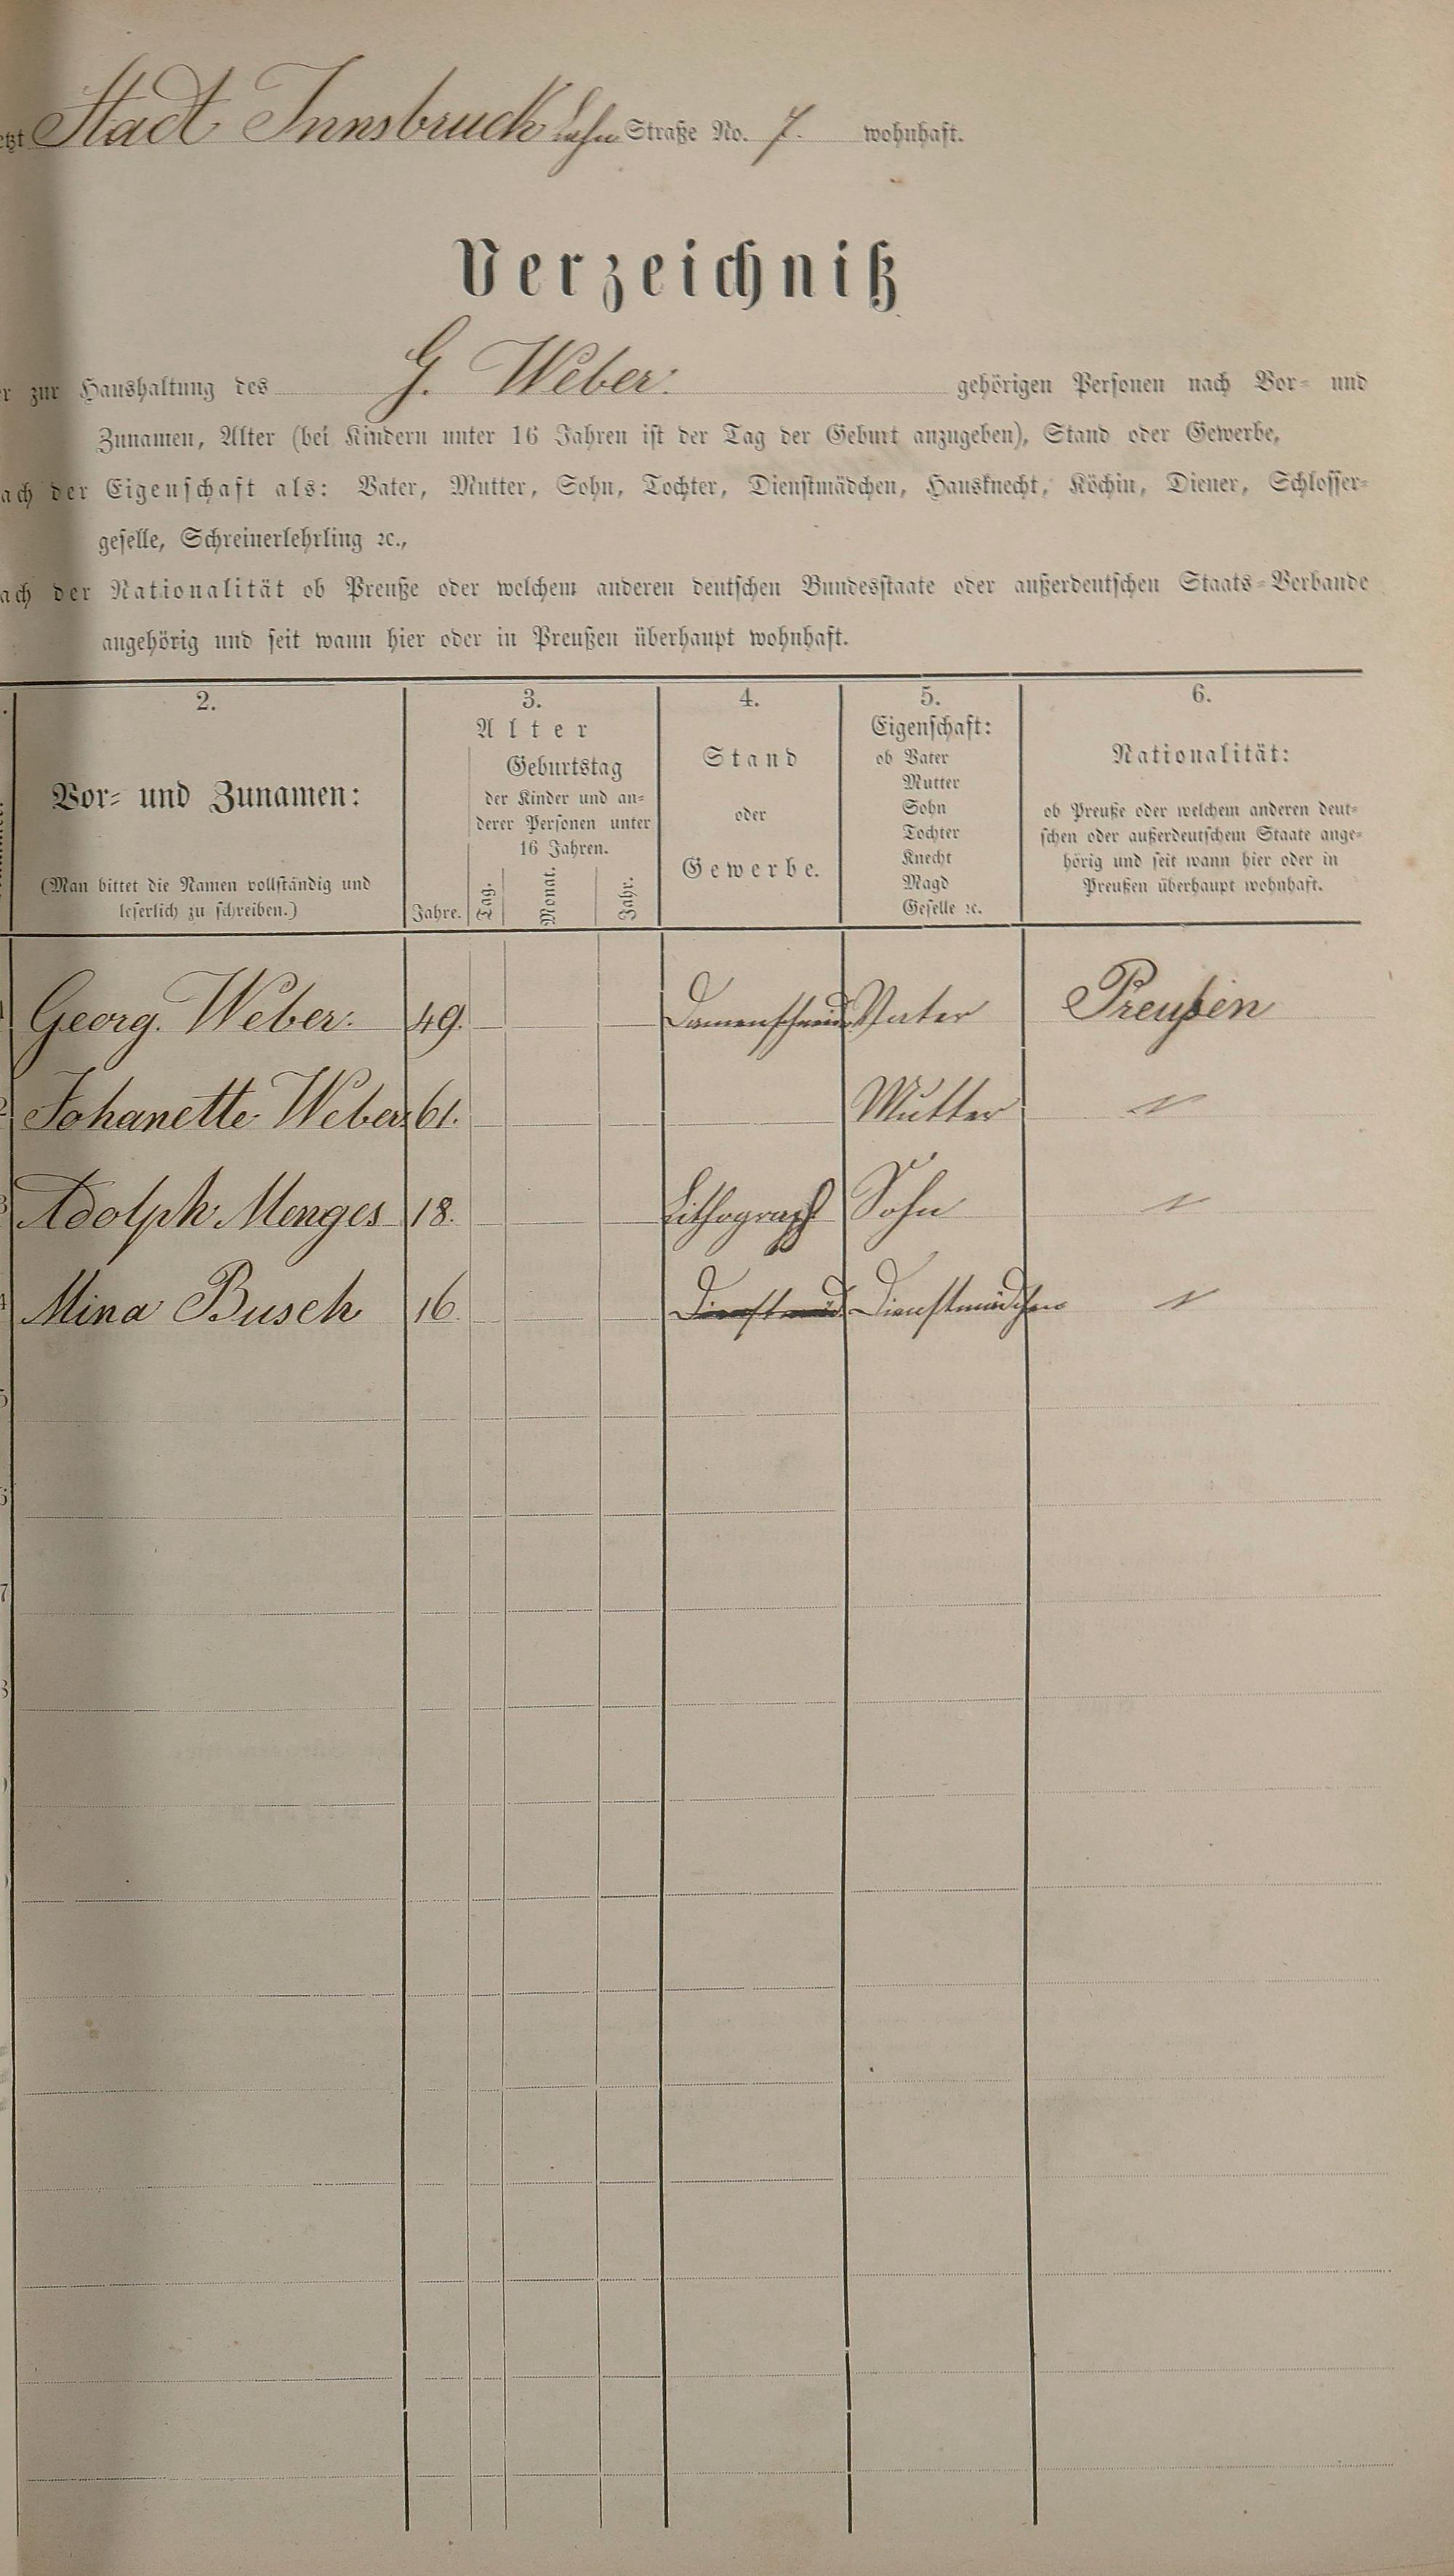 Stadt Innsbruck Lahn Straße No. 7. wohnhaft.
Verzeichniß
zur Haushaltung des G. Weber. gehörigen Personen nach Vor- und
Zunamen, Alter (bei Kindern unter 16 Jahren ist der Tag der Geburt anzugeben), Stand oder Gewerbe,
ach der Eigenschaft als: Vater, Mutter, Sohn, Tochter, Dienstmädchen, Hausknecht, Köchin, Diener, Schlosser-
geselle, Schreinerlehrling ꝛc.,
ach der Nationalität ob Preuße oder welchem anderen deutschen Bundesstaate oder außerdeutschen Staats-Verbande
angehörig und seit wann hier oder in Preußen überhaupt wohnhaft.
2.
Vor- und Zunamen:
(Man bittet die Namen vollständig und
leserlich zu schreiben.)
3.
Alter
Geburtstag
der Kinder und an-
derer Personen unter
16 Jahren.
Jahre. Tag. Monat. Jahr.
4.
Stand
oder
Gewerbe.
5.
Eigenschaft:
ob Vater
Mutter
Sohn
Tochter
Knecht
Magd
Geselle ꝛc.
6.
Nationalität:
ob Preuße oder welchem anderen deut-
schen oder außerdeutschem Staate ange-
hörig und seit wann hier oder in
Preußen überhaupt wohnhaft.
1 Georg. Weber. 49. Damenschneider Vater Preußen
2 Johanette Weber. 61. Mutter "
3 Adolph Menges 18. Lithograph Sohn "
4 Mina Busch 16. Dienstmäd. Dienstmädchen "
5
6
7
8